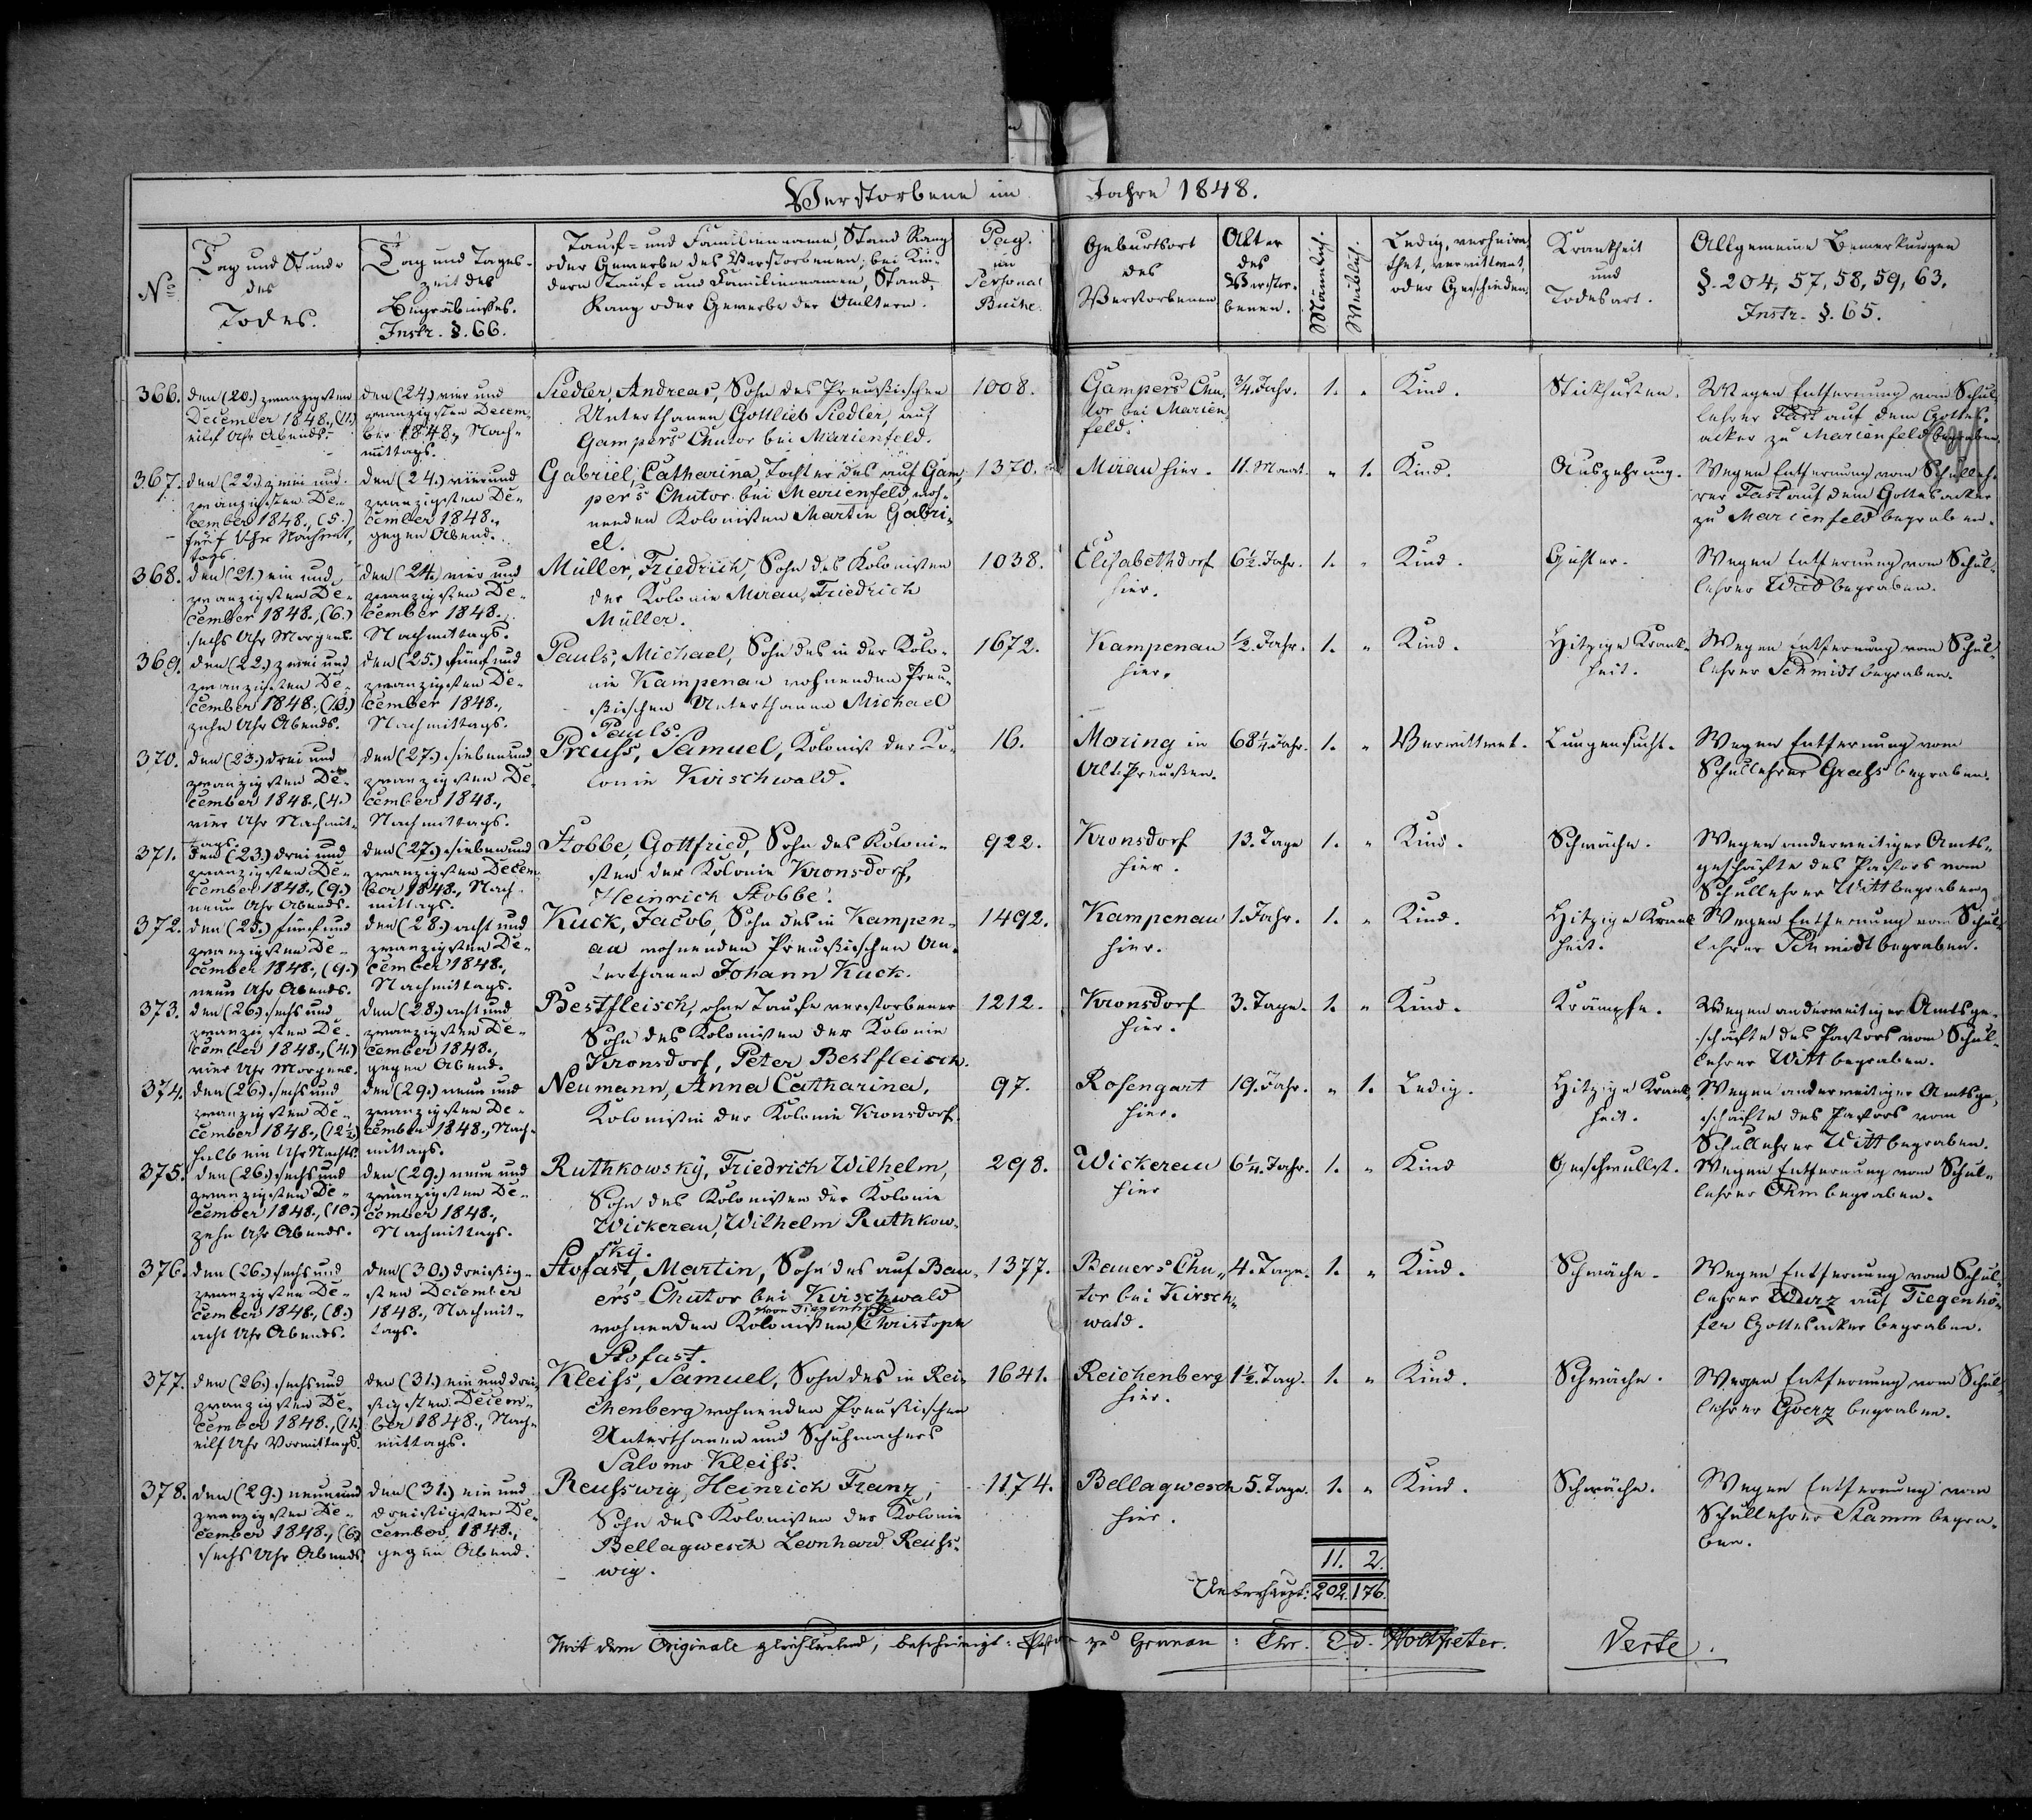 Verstorbene im Jahre 1848.
No
Tag und Stunde
des
Todes.
Tag und Tages-
zeit des
Begräbnißes.
Instr. §. 66.
Tauf- und Familienname, Stand Rang
oder Gewerbe des Verstorbenen; bei Kin-
dern Tauf- und Familiennamen, Stand,
Rang oder Gewerbe der Aeltern.
Pag.
im
Personal
Buche.
Geburtsort
des
Verstorbenen
Alter
des
Verstor-
benen.
Männlich.
Weiblich.
Ledig, verheira-
thet, verwittwet,
oder Geschieden.
Krankheit
und
Todesart.
Allgemeine Bemerkungen
§. 204, 57, 58, 59, 63.
Instr. §. 65.
366.
den (20.) zwanzigsten
December 1848., (11.)
eilf Uhr Abends.
den (24.) vier und
zwanzigsten Decem-
ber 1848., Nach-
mittags.
Siedler, Andreas, Sohn des Preußischen
Unterthanen Gottlieb Siedler, auf
Gampers Chutor bei Marienfeld.
1008.
Gampers Chu-
tor bei Marien
feld.
3/4. Jahr.
1.
"
Kind.
Stickhusten.
Wegen Entfernung vom Schul-
lehrer Fast auf dem Gottes-
acker zu Marienfeld begraben.
367.
den (22.) zwei und
zwanzigsten De-
cember 1848., (5.)
fünf Uhr Nachmit-
tags.
den (24.) vier und
zwanzigsten De-
cember 1848.,
gegen Abend.
Gabriel, Catharina, Tochter des auf Gam-
pers Chutor bei Marienfeld woh-
nenden Kolonisten Martin Gabri-
el.
1370.
Mirau hier.
11. Monat.
"
1.
Kind.
Auszehrung.
Wegen Entfernung vom Schulleh-
rer Fast auf dem Gottesacker
zu Marienfeld begraben.
368.
den (21.) ein und
zwanzigsten De-
cember 1848., (6.)
sechs Uhr Morgens.
den (24.) vier und
zwanzigsten De-
cember 1848.,
Nachmittags.
Müller, Friedrich, Sohn des Kolonisten
der Kolonie Mirau, Friedrich
Müller.
1038.
Elisabethdorf
hier.
6 1/2. Jahr.
1.
"
Kind.
Husten.
Wegen Entfernung vom Schul-
lehrer Wad begraben.
369.
den (22.) zwei und
zwanzigsten De-
cember 1848., (10.)
zehn Uhr Abends.
den (25.) fünf und
zwanzigsten De-
cember 1848.,
Nachmittags.
Pauls, Michael, Sohn des in der Kolo-
nie Kampenau wohnenden Preu-
ßischen Unterthanen Michael
Pauls.
1672.
Kampenau
hier.
1/2. Jahr.
1.
"
Kind.
Hitzige Krank-
heit.
Wegen Entfernung vom Schul-
lehrer Schmidt begraben.
370.
den (23.) drei und
zwanzigsten De-
cember 1848., (4.)
vier Uhr Nachmit-
tags.
den (27.) sieben und
zwanzigsten De-
cember 1848.,
Nachmittags.
Preuss, Samuel, Kolonist der Ko-
lonie Kirschwald.
16.
Moring in
Alt-Preußen.
68 1/4. Jahr.
1.
"
Verwittwet.
Lungensucht.
Wegen Entfernung vom
Schullehrer Grahs begraben.
371.
den (23.) drei und
zwanzigsten De-
cember 1848., (9.)
neun Uhr Abends.
den (27.) sieben und
zwanzigsten Decem-
ber 1848., Nach-
mittags.
Stobbe, Gottfried, Sohn des Koloni-
sten der Kolonie Kronsdorf,
Heinrich Stobbe.
922.
Kronsdorf
hier.
13. Tage
1.
"
Kind.
Schwäche.
Wegen anderweitiger Amts-
geschäfte des Pastors vom
Schullehrer Witt begraben.
372.
den (25.) fünf und
zwanzigsten De-
cember 1848., (9.)
neun Uhr Abends.
den (28.) acht und
zwanzigsten De-
cember 1848.,
Nachmittags.
Kuck, Jacob, Sohn des in Kampen-
au wohnenden Preußischen Un-
terthanen Johann Kuck.
1492.
Kampenau
hier.
1. Jahr.
1.
"
Kind.
Hitzige Krank
heit.
Wegen Entfernung vom Schul-
lehrer Schmidt begraben.
373.
den (26.) sechs und
zwanzigsten De-
cember 1848., (4.)
vier Uhr Morgens.
den (28.) acht und
zwanzigsten De-
cember 1848.,
gegen Abend.
Bestfleisch, ohne Taufe verstorbener
Sohn des Kolonisten der Kolonie
Kronsdorf, Peter Bestfleisch.
1212.
Kronsdorf
hier.
3. Tage.
1.
"
Kind.
Krämpfe.
Wegen anderweitiger Amtsge-
schäfte des Pastors vom Schul-
lehrer Witt begraben.
374.
den (26.) sechs und
zwanzigsten De-
cember 1848., (12 1/2.)
halb ein Uhr Nachts.
den (29.) neun und
zwanzigsten De-
cember 1848., Nach-
mittags.
Neumann, Anna Catharina,
Kolonistin der Kolonie Kronsdorf.
97.
Rosengart
hier.
19. Jahr.
"
1.
Ledig.
Hitzige Krank-
heit.
Wegen anderweitiger Amtsge-
schäfte des Pastors vom
Schullehrer Witt begraben.
375.
den (26.) sechs und
zwanzigsten De-
cember 1848., (10.)
zehn Uhr Abends.
den (29.) neun und
zwanzigsten De-
cember 1848.,
Nachmittags.
Ruthkowsky, Friedrich Wilhelm,
Sohn des Kolonisten der Kolonie
Wickerau, Wilhelm Ruthkow-
sky.
298.
Wickerau
hier
6 1/4. Jahr.
1.
"
Kind
Geschwullst.
Wegen Entfernung vom Schul-
lehrer Ohm begraben.
376.
den (26.) sechs und
zwanzigsten De-
cember 1848., (8.)
acht Uhr Abends.
den (30.) dreißig-
sten December
1848., Nachmit-
tags.
Stofast, Martin, Sohn des auf Bau-
ers Chutor bei Kirschwald
von Tiegenhof
wohnenden Kolonisten Christoph
Stofast.
1377.
Bauers Chu-
tor bei Kirsch-
wald.
4. Tage.
1.
"
Kind.
Schwäche.
Wegen Entfernung vom Schul-
lehrer Wurz auf Tiegenhö-
fer Gottesacker begraben.
377.
den (26.) sechs und
zwanzigsten De-
cember 1848., (11.)
eilf Uhr Vormittags.
den (31.) ein und drei-
ßigsten Decem-
ber 1848., Nach-
mittags.
Kleiss, Samuel, Sohn des in Rei-
chenberg wohnenden Preußischen
Unterthanen und Schuhmachers
Salomo Kleiss.
1641.
Reichenberg
hier.
1 1/2. Tag.
1.
"
Kind.
Schwäche.
Wegen Entfernung vom Schul-
lehrer Goerz begraben.
378.
den (29.) neun und
zwanzigsten De-
cember 1848., (6.)
sechs Uhr Abends
den (31.) ein und
dreißigsten De-
cember 1848.,
gegen Abend.
Reusswig, Heinrich Franz,
Sohn des Kolonisten der Kolonie
Bellagwesch Leonhard Reuss-
wig.
1174.
Bellagwesch
hier.
5. Tage.
1.
"
Kind.
Schwäche.
Wegen Entfernung vom
Schullehrer Stamm begra-
ben.
11. 2.
Ueberhaupt: 202. 176.
Mit dem Originale gleichlautend, bescheinigt: Pastor zu Grunau: Chr. Ed. Holtfreter.
Verte.